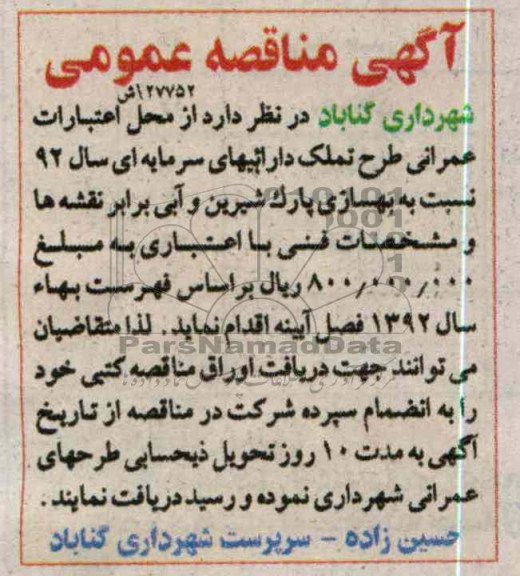 آگهی مناقصه عمومی
۱۲۷۷۵۲/ش
شهرداری گناباد در نظر دارد از محل اعتبارات
عمرانی طرح تملک دارائیهای سرمایه ای سال ۹۲
نسبت به بهسازی پارک شیرین و آبی برابر نقشه ها
و مشخصات فنی با اعتباری به مبلغ
۸۰۰/۰۰۰/۰۰۰ ریال براساس فهرست بهاء
سال ۱۳۹۲ فصل آیینه اقدام نماید. لذا متقاضیان
ParsNamadData
می توانند جهت دریافت اوراق مناقصه کتبی خود
را به انضمام سپرده شرکت در مناقصه از تاریخ
آگهی به مدت ۱۰ روز تحویل ذیحسابی طرحهای
عمرانی شهرداری نموده و رسید دریافت نمایند.
حسین زاده - سرپرست شهرداری گناباد